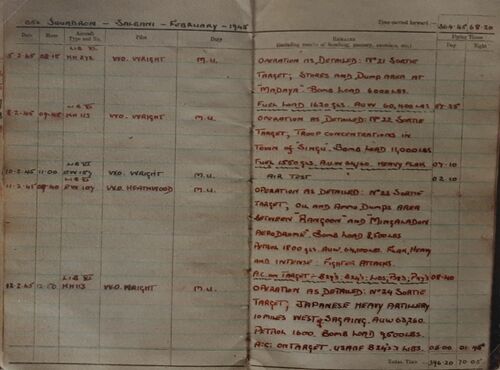 SQUADRON - SALBANI - FEBRUARY - 1945
Time carried forward :— 364.45 68.20
Date Hour Aircraft Type and No. Pilot Duty REMARKS (including results of bombing, gunnery, exercises, etc.) Flying Times Day Night
5.2.45 08.15 LIB VI W/O. WRIGHT M.U. OPERATION AS DETAILED: Nº 21 SORTIE
TARGET; STORES AND DUMP AREA AT
"MADAYA". BOMB LOAD 6000 LBS.
FUEL LOAD 1620 GLS. AUW 60,400 LBS 07.25
8.2.45 09.45 LIB VI W/O. WRIGHT M.U. OPERATION AS DETAILED: Nº 22 SORTIE
TARGET; TROOP CONCENTRATIONS IN
TOWN OF "SINGU". BOMB LOAD 11,000 LBS
FUEL 1550 GLS. AUW HEAVY FLAK 07.10
10.2.45 11.00 LIB VI W/O. WRIGHT M.U. AIR TEST 02.10
11.2.45 LIB VI W/O. HEATHWOOD M.U. OPERATION AS DETAILED: Nº 23 SORTIE
TARGET; OIL AND AMMO DUMPS AREA
BETWEEN "RANGOON" AND "MINGALADON
AERODROME". BOMB LOAD 3,500 LBS
PETROL 1800 GLS. AUW 64,100 LBS. FLAK, HEAVY
AND INTENSE: FIGHTER ATTACKS.
A.C. ON TARGET - B29's, B24's: LIBS, P47's 08.40
12.2.45 LIB VI W/O. WRIGHT M.U. OPERATION AS DETAILED: Nº 24 SORTIE
TARGET; JAPANESE HEAVY ARTILLERY
10 MILES WEST OF SAGAING. AUW 63,260.
PETROL 1600. BOMB LOAD 9,500 LBS
A.C. ON TARGET. USAAF B24's & LIBS. 06.00 01.45
TOTAL TIME 396.20 70.05